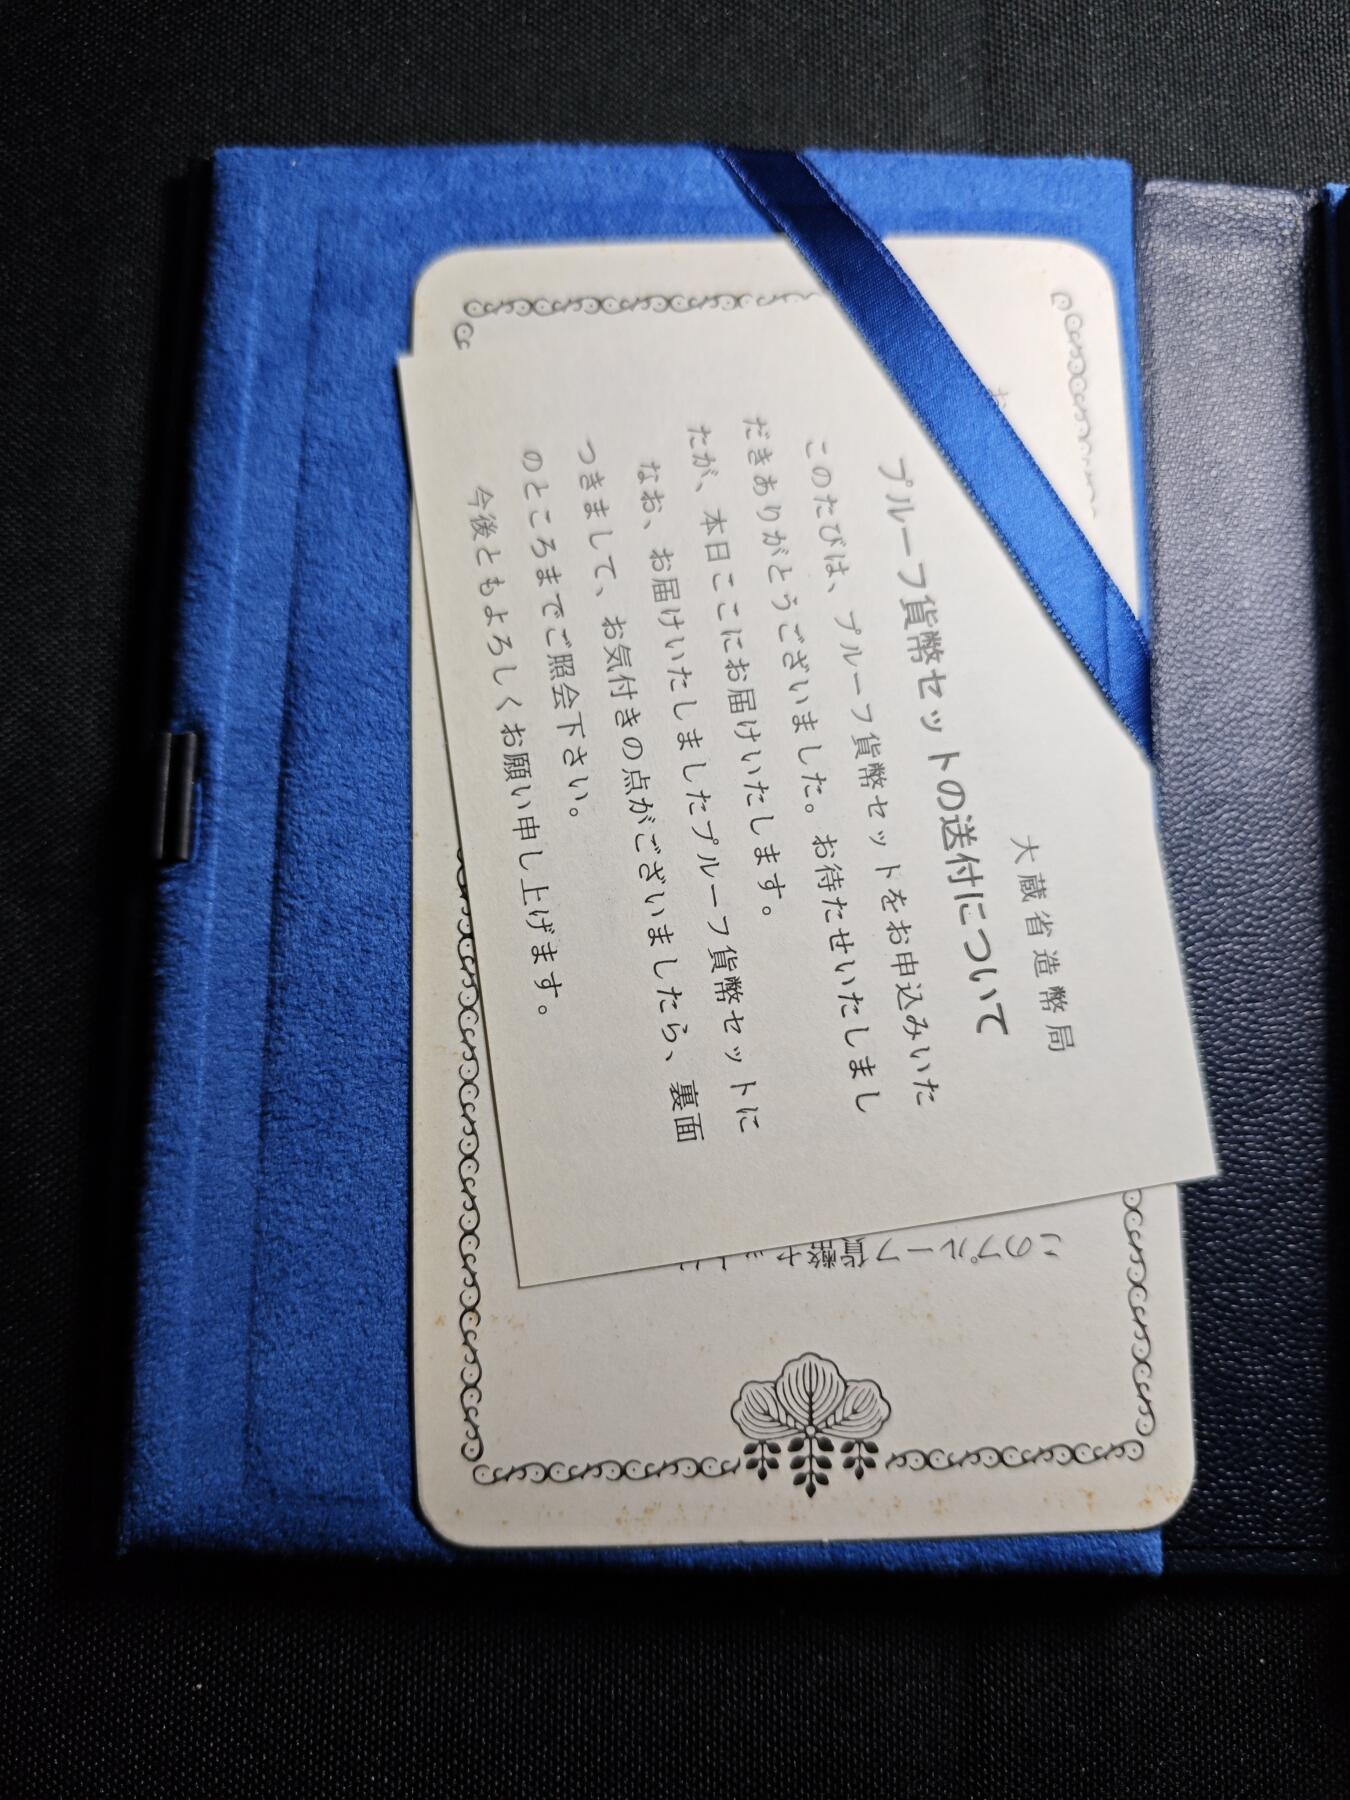 大蔵省造幣局
プルーフ貨幣セットの送付について
このたびは、プルーフ貨幣セットをお申込みいた
だきありがとうございました。お待たせいたしまし
たが、本日ここにお届けいたします。
なお、お届けいたしましたプルーフ貨幣セットに
つきまして、お気付きの点がございましたら、裏面
のところまでご照会下さい。
今後ともよろしくお願い申し上げます。
このプルーフ貨幣セット